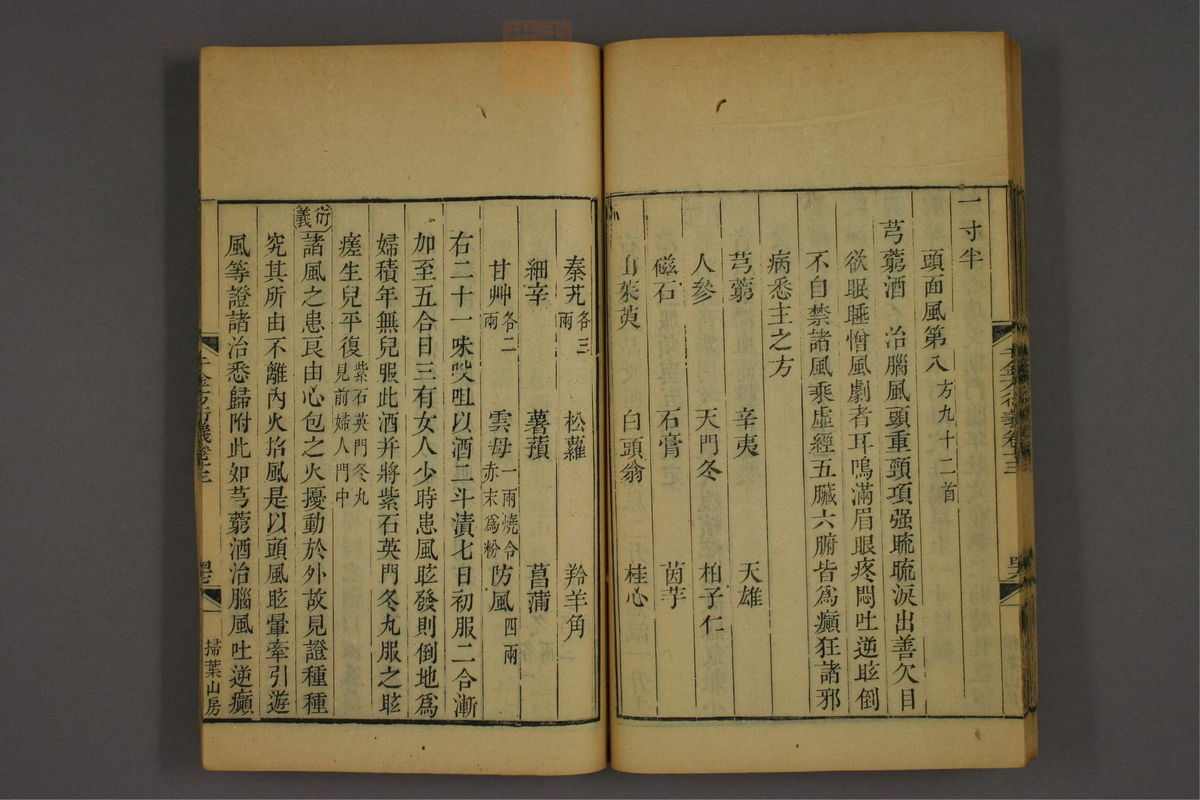 一寸半
頭面風第八方九十二首
芎藭酒 治腦風頭重頸項强䀮䀮淚出善欠目
欲眠睡憎風劇者耳鳴滿眉眼疼悶吐逆眩倒
不自禁諸風乘虛經五臟六腑皆爲癲狂諸邪
病悉主之方
芎藭 辛夷 天雄
人參 天門冬 柏子仁
磁石 石膏 茵芋
山茱萸 白頭翁 桂心
秦艽各三兩 松蘿 羚羊角
細辛 薯蕷 菖蒲
甘艸各二兩 雲母一兩燒令赤末爲粉 防風四兩
右二十一味㕮咀以酒二斗漬七日初服二合漸
加至五合日三有女人少時患風眩發則倒地爲
婦積年無兒服此酒并將紫石英門冬丸服之眩
瘥生兒平復紫石英門冬丸見前婦人門中
衍義諸風之患良由心包之火擾動於外故見證種種
究其所由不離內火招風是以頭風眩暈牽引遊
風等證諸治悉歸附此如芎藭酒治腦風吐逆癲
掃葉山房